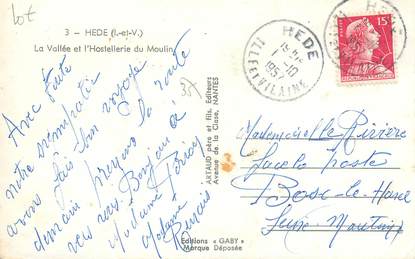 lot
3 - HEDE (I.-et-V.)
La Vallée et l'Hostellerie du Moulin
35
HEDE
1 -10
195
ILLE ET VILAINE
15F
Avec toute
notre sympathie
avons fait bon voyage
demain prenons la route
vers vous. Bonjour à
Madame
Madame
ARTAUD père et fils, Editeurs
Avenue de la Close, NANTES
Editions "GABY"
Marque Déposée
Mademoiselle Rivière
face la Poste
Bosc-le-Hard
Seine Maritime